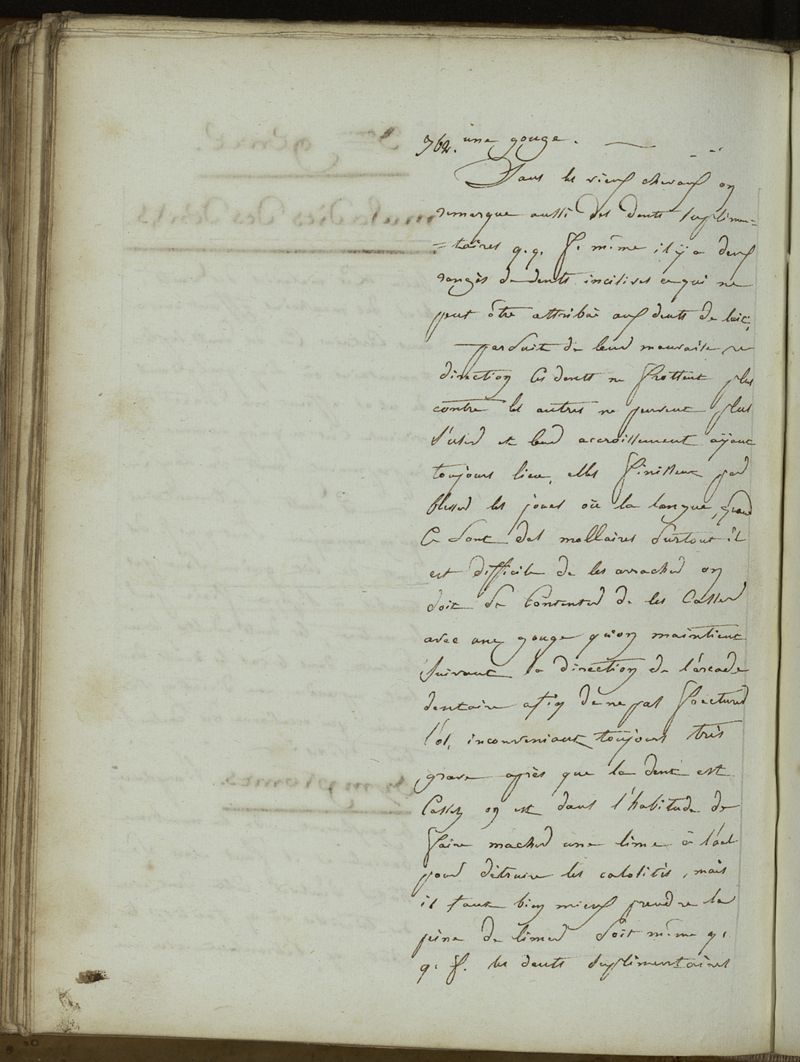 362. une gouge.
Dans les vieux chevaux on
remarque aussi des dents suplimen=
=taires q.q. f. même il y a deux
rangés de dents incisives ce qui ne
peut être attribué aux dents de lait,
par suite de leur mauvaise
direction ces dents ne frottent plus
contre les autres ne peuvent plus
s'user et leur accroissement ayant
toujours lieu, elles finissent par
blesser les joues où la langue, quand
ce sont des mollaires surtout il
est difficile de les arracher on
doit se contenter de les casser
avec une gouge qu'on maintient
suivant la direction de l'arcade
dentaire afin de ne pas fracturer
l'os, inconveniant toujours très
grave après que la dent est
cassez on est dans l'habitude de
faire macher une lime à
pour détruire les , mais
il faut bien mieux prendre la
peine de limer soit même q.
q. f. les dents suplimentaires
3eme genre.
maladies des dents
Symptomes.